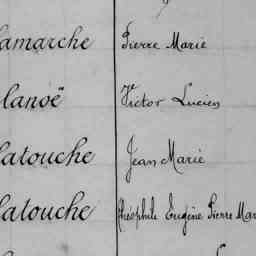 Lamarche Pierre Marie
Lanoë Victor Lucien
Latouche Jean Marie
Latouche Théophile Eugène Pierre Mar